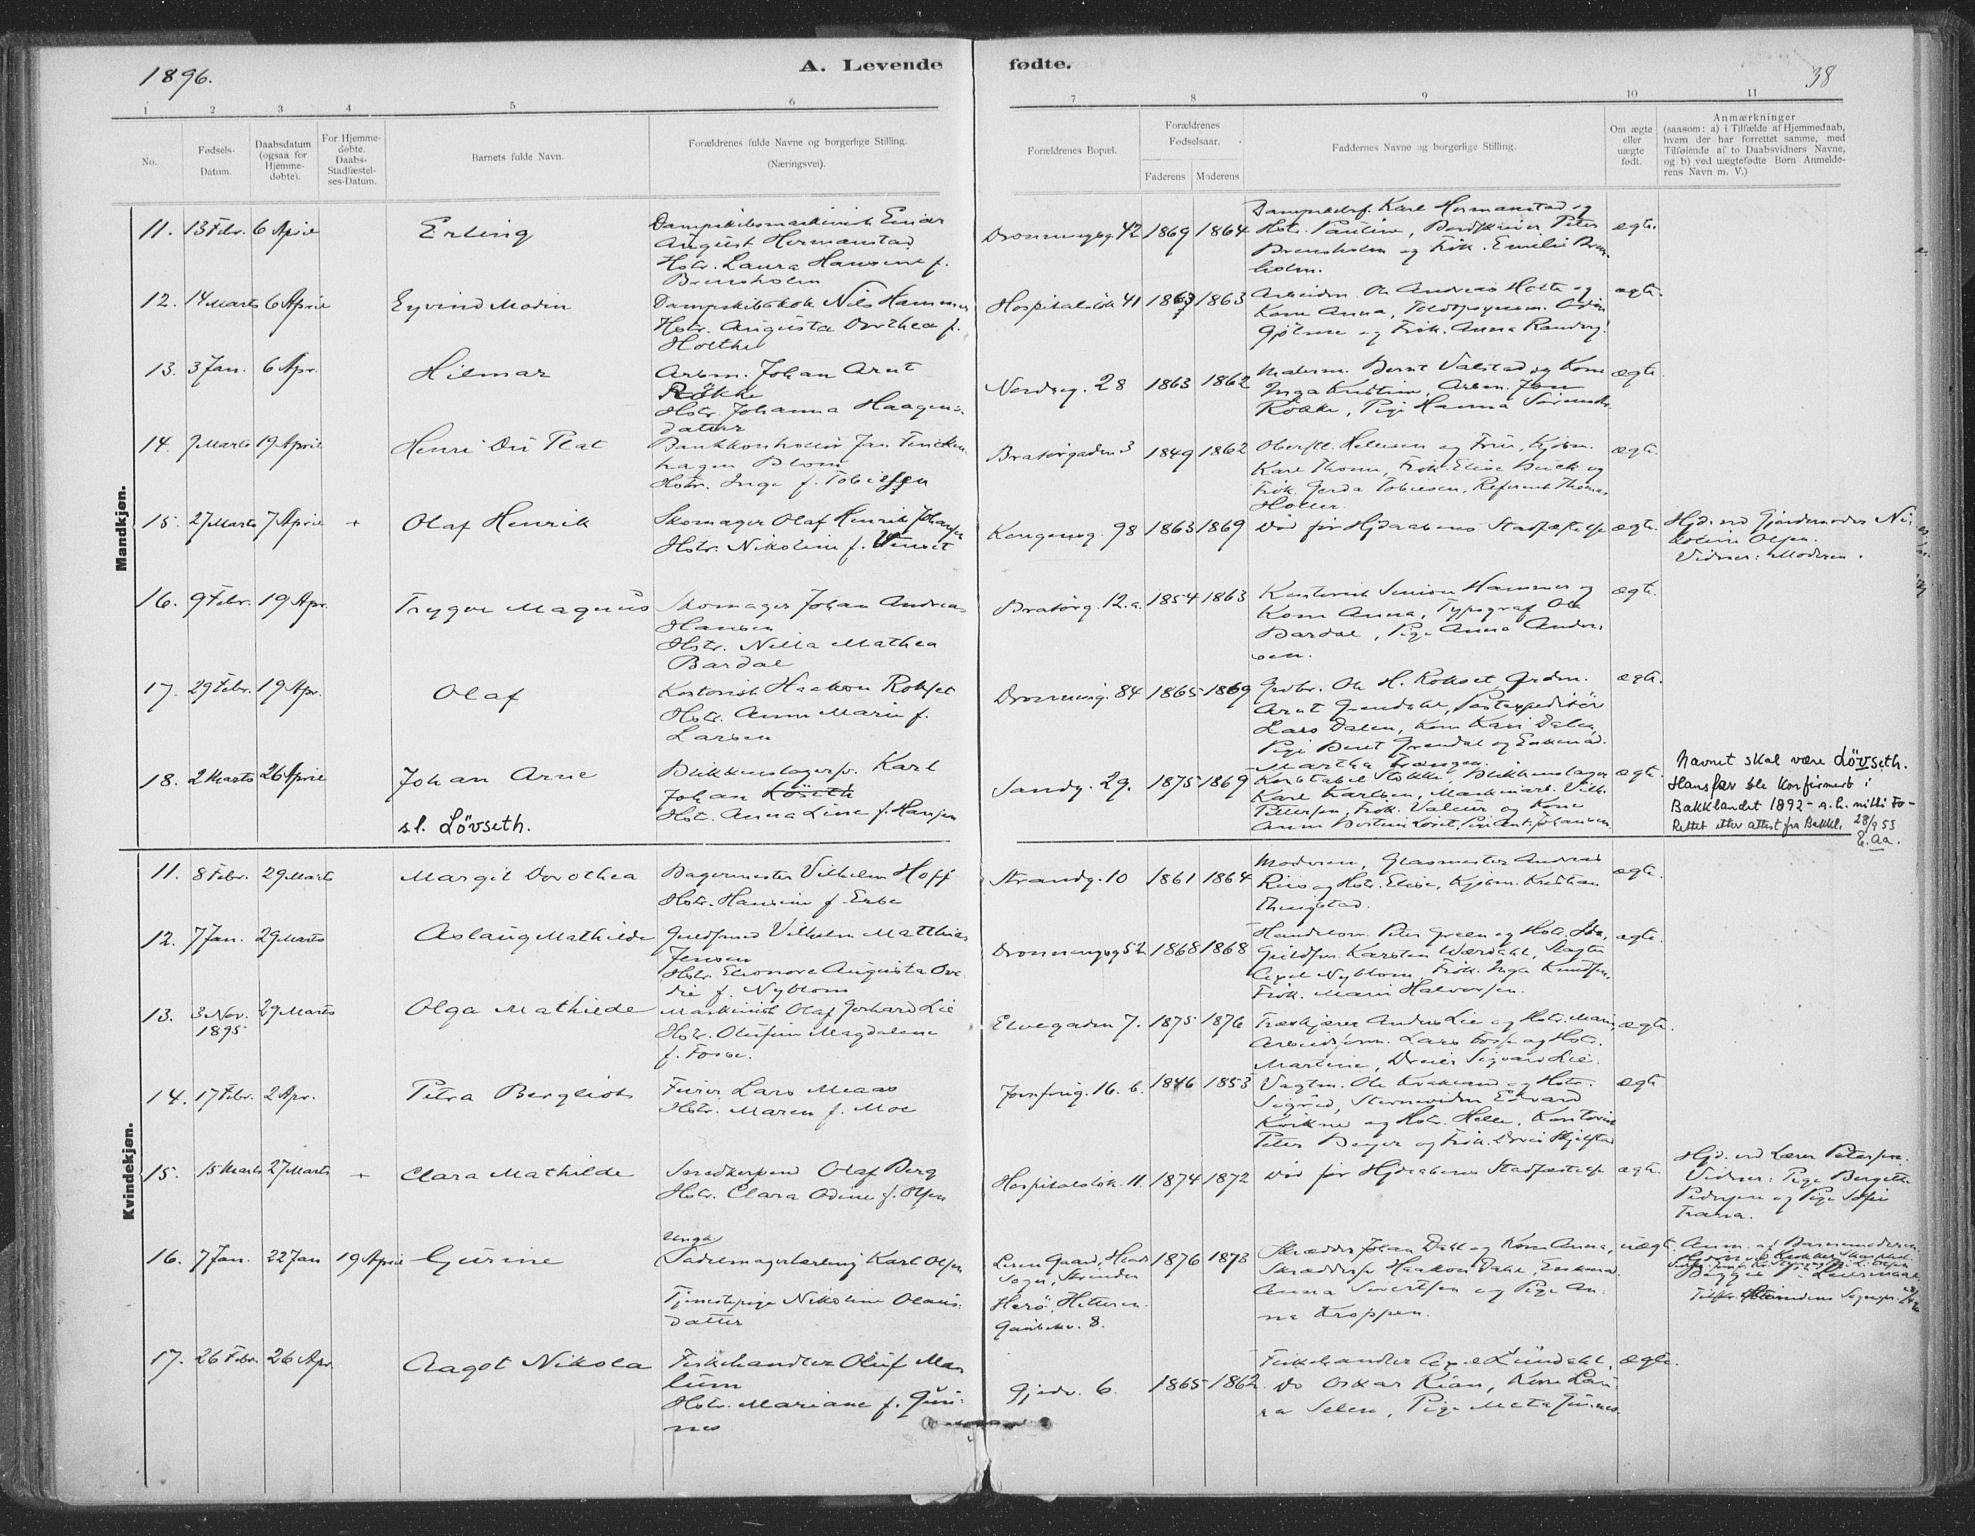 1896.
A. Levende fødte.
38
1 2 3 4 5 6 7 8 9 10 11
No.
Fødsels-
Datum.
Daabsdatum
(ogsaa for
Hjemme-
døbte).
For Hjemme-
døbte.
Daabs-
Stadfæstel-
ses-Datum.
Barnets fulde Navn.
Forældrenes fulde Navne og borgerlige Stilling.
(Næringsvei).
Forældrenes Bopæl.
Forældrenes
Fødselsaar.
Faderens Moderens
Faddernes Navne og borgerlige Stilling.
Om ægte
eller
uægte
født.
Anmærkninger
(saasom: a) i Tilfælde af Hjemmedaab,
hvem der har forrettet samme, med
Tilføiende af to Daabsvidners Navne,
og b) ved uægtefødte Børn Anmelde-
rens Navn m. V.)
Mandkjøn.
11. 13 Febr. 6 April Erling
Dampskibsmaskinist Einar
August Hermanstad
Hstr. Laura Hansine f.
Brensholm
Dronningsg. 42 1869 1864
Dampskibsf. Karl Hermanstad og
Hstr. Pauline, Bordskriver Peter
Brensholm og Frk. Emelie Bren-
holm.
ægte.
12. 14 Marts 6 April Eyvind Modin
Dampskibskok Nils Hammer
Hstr. Augusta Dorthea f.
Holthe
Hospitalsløk. 41 1863 1863
Arbeidm. Ole Andreas Holte og
Kone Anna, Toldopsynsm. Odin
Gjølme og Frk. Anna Randvig.
ægte.
13. 3 Jan. 6 Apr. Hilmar
Arbm. Johan Arnt
Rökke
Hstr. Johanna Haagens-
datter
Nordreg. 28 1863 1862
Malerm. Bernt Valstad og Kone
Inga Kristine, Arbm. Jon
Rökke, Pige Hanna
ægte.
14. 7 Marts 19 April Henri Du Plat
Bankkontrollør Jan Fincken-
hagen Blom
Hstr. Inga f. Tobiesen
Bratørgaden 3 1849 1862
Oberstl. Helesen og Frue, Kjøbm.
Karl Thonn, Frk. Elise Buck og
Frk. Gerda Tobiesen, Referent Thomas
ægte.
15. 27 Marts 7 April + Olaf Henrik
Skomager Olaf Henrik Johansen
Hstr. Nikoline f.
Kongensg. 98 1863 1869 Død før Hjdaabens Stadfæstelse ægte.
Hjd. ved Gjordemoder Ni-
koline Olsen.
Vidner: Moderen.
16. 9 Febr. 19 Apr. Trygve Magnus
Skomager Johan Andreas
Hansen
Hstr. Nilla Mathea
Bardal
Bratørg. 12.a. 1854 1863
Kontorist Simon Hammer og
Kone Anna, Typograf Ole
Bardal, Pige Anna Ander-
sen.
ægte.
17. 29 Febr. 19 Apr. Olaf
Kontorist Haakon Rokset
Hstr. Anne Marie f.
Larsen
Dronning. 84 1865 1869
Grdbr. Ole H. Rokset Grdm.
Arnt Grendal, Postexpeditør
Lars Dalen, Kone Kari Dalen,
Pige Beret Grendal og Enkemad.
Martha
ægte.
18. 2 Marts 26 April Johan Arne
sl. Lövseth.
Blikkenslagersv. Karl
Johan Löseth
Hst. Anna Line f. Hansen
Sandg. 29. 1875 1869
Konstabel Stokke, Blikkenslager
Karl Karlsen, Maskinarb. Vilh.
Pettersen, Frk. Valeur og Kone
ægte.
Navnet skal være Lövseth.
Hans far ble konfirmert i
Bakklandet 1892 -
Rettet etter attest fra Bakkl. 28/9 53
E. Aa.
Kvindekjøn.
11. 8 Febr. 29 Marts Margit Dorothea
Bagermester Vilhelm Hoff
Hstr. Hansine f. Erbe
Strandg. 10 1861 1864
Moderen, Glasmester Andreas
Riis og Hstr. Elise, Kjøbm. Kristian
Thingstad.
ægte.
12. 7 Jan. 29 Marts Aslaug Mathilde
Guldsmed Vilhelm Matthias
Jensen
Hstr. Eleonore Augusta Ove-
die f. Nyblom
Dronningsg 52 1868 1868
Handelsm. Peter Green og Hstr. Ida,
Guldsm. Karsten Wærdahl, Slagter
Axel Nyblom, Frk. Inga Knudsen,
Frk. Marie Halvorsen.
ægte.
13. 3 Nov. 29 Marts Olga Mathilde
1895
Maskinist Olaf Gerhard Lie
Hstr. Olufine Magdalene
f. Fosse.
Elvegaden 7. 1875 1876
Træskjærer Anders Lie og Hstr. Marie,
Arbeidsform. Lars Fosse og Hstr.
Martine, Dreier Sigvard Lie.
ægte.
14. 17 Febr. 2 Apr. Petra Bergliot
Furer Lars Maas
Hstr. Maren f. Moe
Jomfrug. 16. b. 1846 1853
Vagtm. Ole Kvakland og Hstr.
Sigrid, Edvard
Kvikne og Hstr. Helle, Kontorist
Peter Beyer og Frk. Doris Skjelstad
ægte
15. 15 Marts 27 Marts + Clara Mathilde
Snedkersvend Olaf Berg
Hstr. Clara Odine f. Olsen
Hospitalsløk. 11. 1874 1872 Død før Hjdaabens Stadfæstelse ægte.
Hjd. ved Lærer Petersen.
Vidner: Pige Bergitte
Pedersen og Pige Sofie
Trana.
16. 7 Jan. 22 Jan 19 April Gurine
unge
Sadelmagerlærling Karl Olsen
Tjenestepige Nikoline Olaus-
datter
Leren Gaard,
Sogn, Strinden
Herö, Hitteren
Gaubekv. 8.
1876 1873
Skrædder Johan Dahl og Kone Anna,
Skræddersv Haakon Dahl, Enkemad.
Anna Sivertsen og Pige An-
na Kroppen.
uægt.
Anm. af Barnemoderen
17. 26 Febr. 26 Apr. Aagot Nikola
Fiskehandler Oluf Mas-
lum
Hstr. Mariane f. Guri-
nes
Gjedv. 6. 1865 1862
Fiskehandler Axel Lundahl,
Do Oskar Kian, Kone Lau-
ra Selen, Pige Meta Gurines.
ægte.